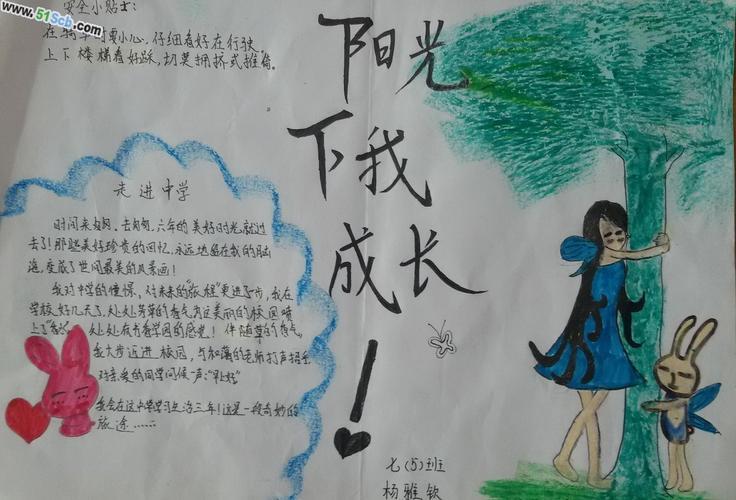 www.51Scb.com
安全小贴士:
在骑车时要小心,仔细看好在行驶。
上下楼梯看好踩,切莫拥挤或推偷。
阳光
下我
成长
!
走进中学
时间来匆匆、去匆匆,六年的美好时光就过
去了!那些美好珍贵的回忆,永远地留在我的脑
海,变成了世间最美的风景画!
我对中学的憧憬、对未来的"旅程"更进了步,我在
学校好几天了,处处芳草的香气为这美丽的校园喷
上了
处处有书香学园的感觉!伴随草的香气,
我大步迈进校园,与和蔼的老师打声招呼
对亲爱的同学问候一声:"你好"
我会在这中学学习生活三年!这是一段奇妙的
旅途……
七(5)班
杨雅钦